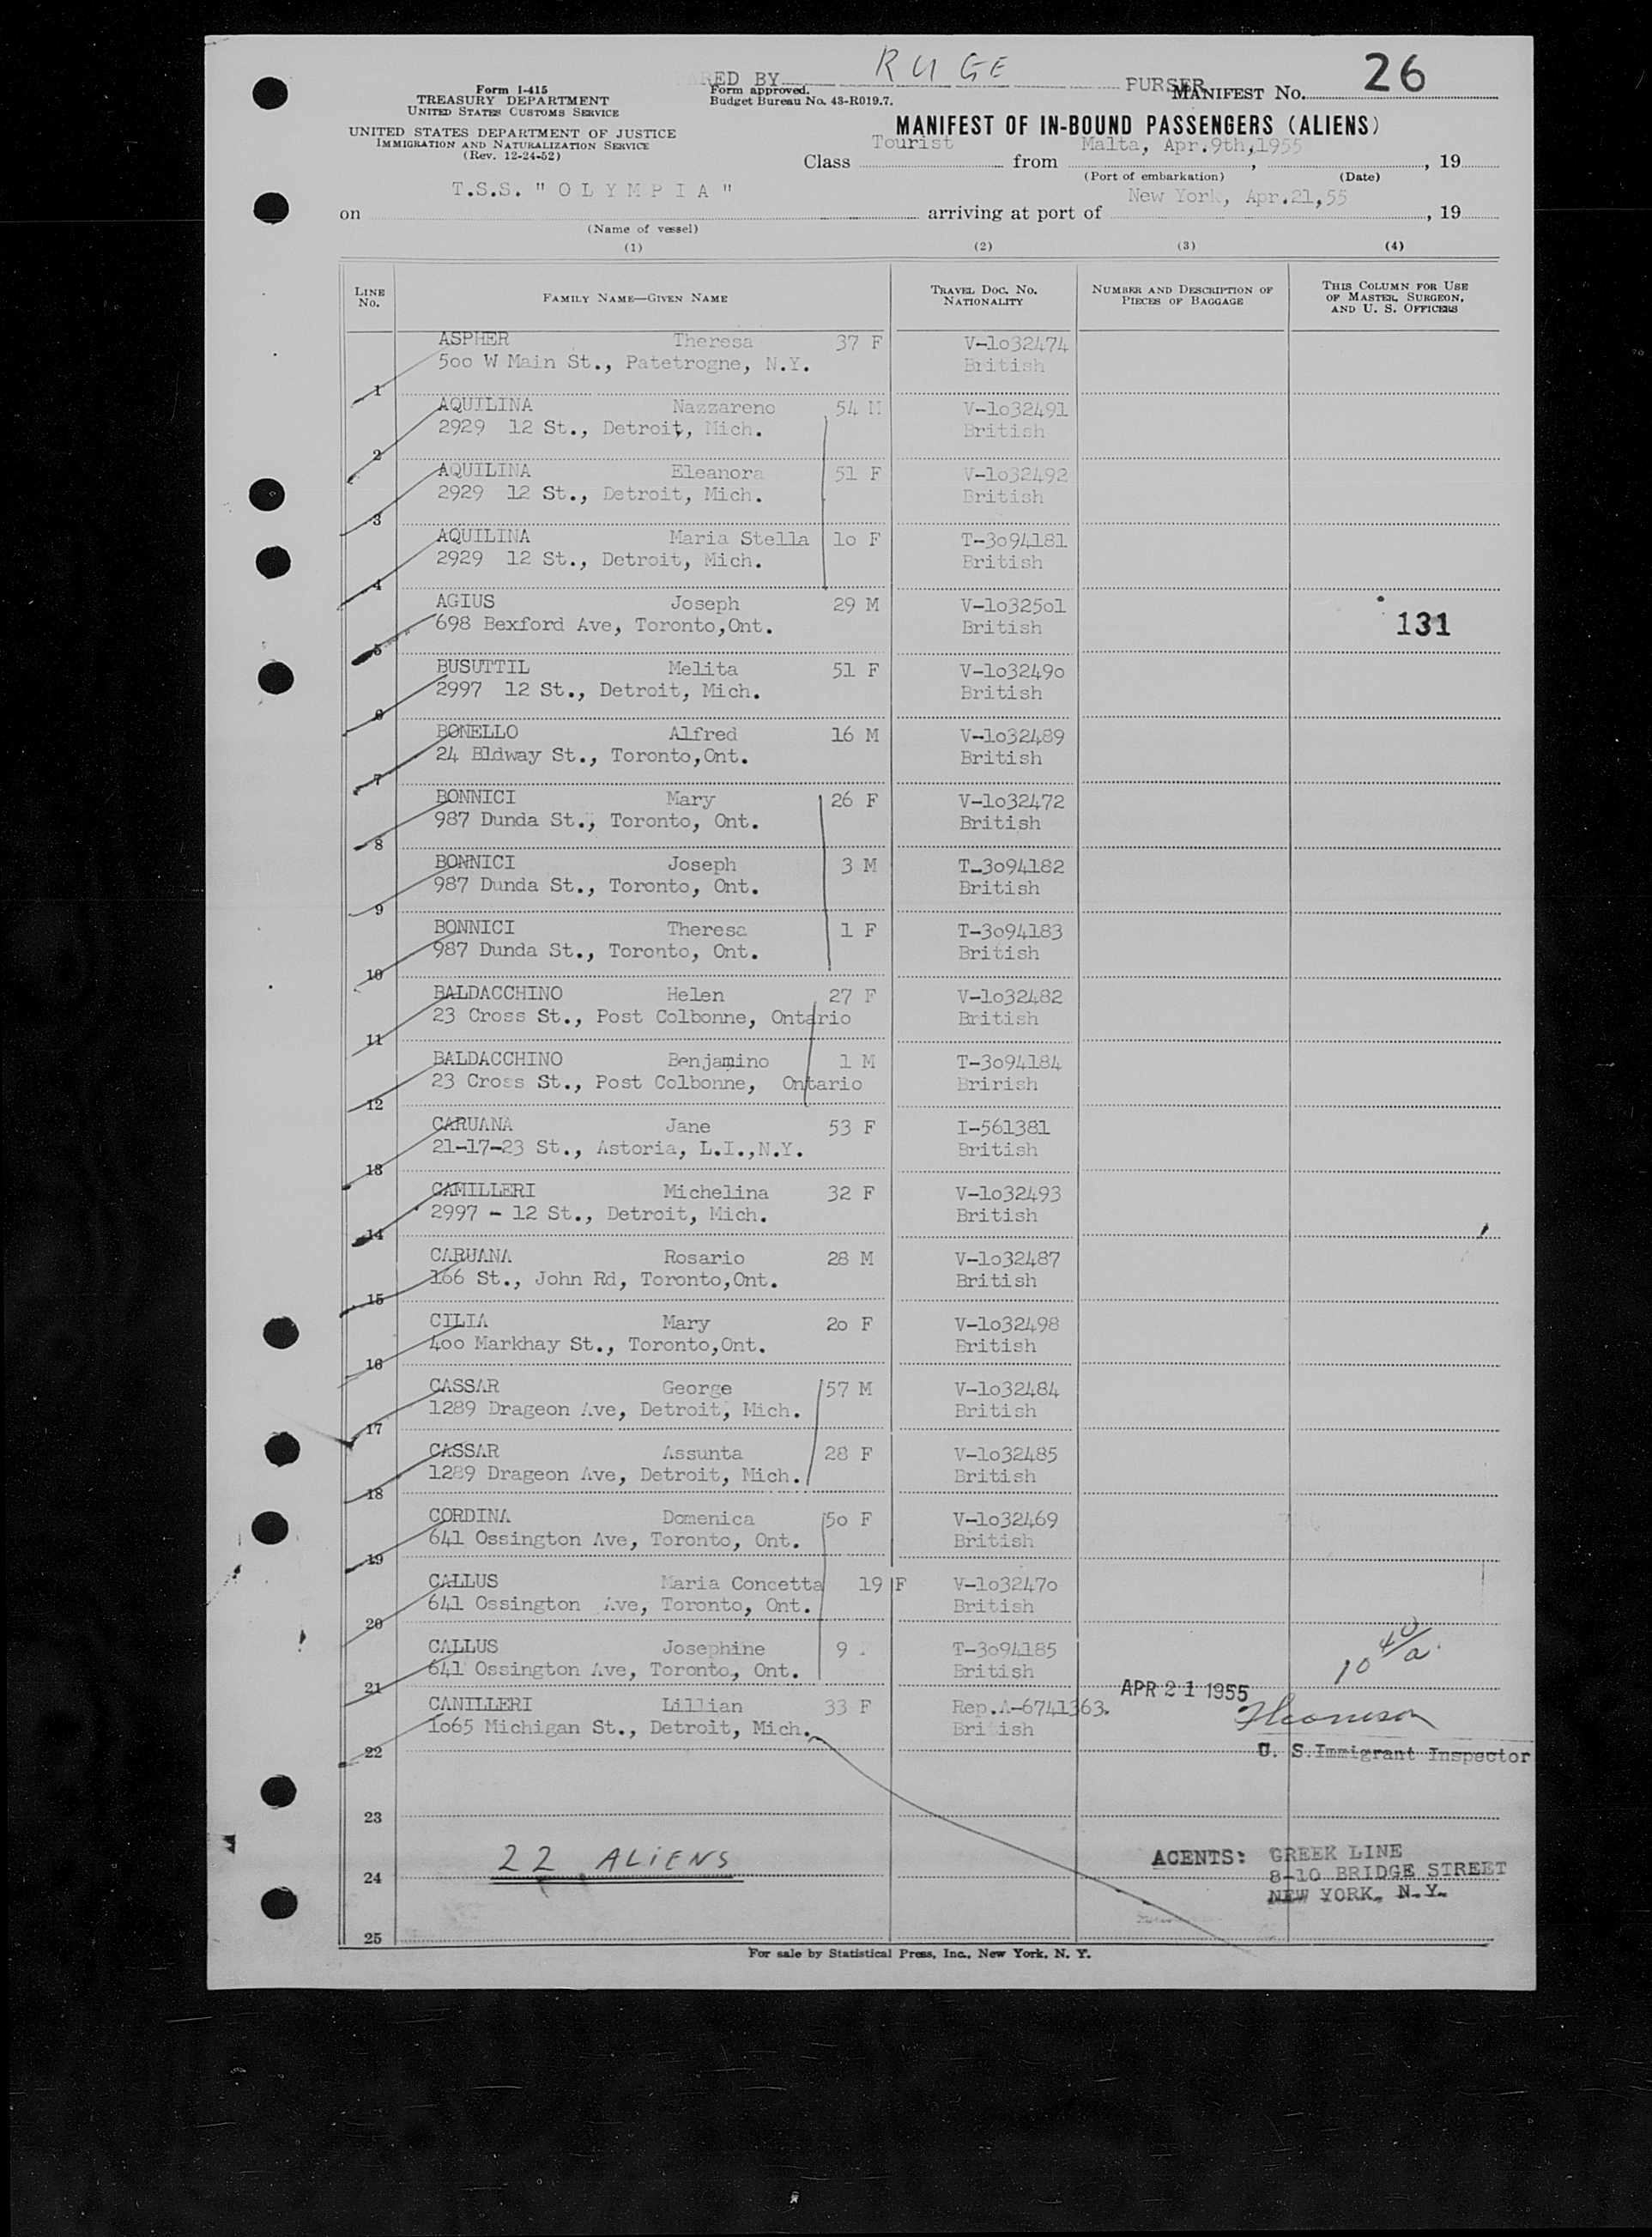 RED BY RUGE PURSER
Form I-415
TREASURY DEPARTMENT
UNITED STATES CUSTOMS SERVICE
UNITED STATES DEPARTMENT OF JUSTICE
IMMIGRATION AND NATURALIZATION SERVICE
(Rev. 12-24-52)
Form approved.
Budget Bureau No. 43-R019.7.
MANIFEST No. 26
MANIFEST OF IN-BOUND PASSENGERS (ALIENS)
Class Tourist from Malta, Apr.9th,1955, 19
(Port of embarkation) (Date)
on T.S.S. "OLYMPIA" arriving at port of New York, Apr.21,55, 19
(Name of vessel)
(1) (2) (3) (4)
LINE No. FAMILY NAME—GIVEN NAME TRAVEL DOC. No. NATIONALITY NUMBER AND DESCRIPTION OF PIECES OF BAGGAGE THIS COLUMN FOR USE OF MASTER, SURGEON, AND U. S. OFFICERS
ASPHER Theresa 37 F V-1o32474
1 5oo W Main St., Patetrogne, N.Y. British
AQUILINA Nazzareno 54 M V-1o32491
2 2929 12 St., Detroit, Mich. British
AQUILINA Eleanora 51 F V-1o32492
3 2929 12 St., Detroit, Mich. British
AQUILINA Maria Stella 1o F T-3o94181
4 2929 12 St., Detroit, Mich. British
AGIUS Joseph 29 M V-1o325o1
5 698 Bexford Ave, Toronto,Ont. British 131
BUSUTTIL Melita 51 F V-1o3249o
6 2997 12 St., Detroit, Mich. British
BONELLO Alfred 16 M V-1o32489
7 24 Bldway St., Toronto,Ont. British
BONNICI Mary 26 F V-1o32472
8 987 Dunda St., Toronto, Ont. British
BONNICI Joseph 3 M T-3o94182
9 987 Dunda St., Toronto, Ont. British
BONNICI Theresa 1 F T-3o94183
10 987 Dunda St., Toronto, Ont. British
BALDACCHINO Helen 27 F V-1o32482
11 23 Cross St., Post Colbonne, Ontario British
BALDACCHINO Benjamino 1 M T-3o94184
12 23 Cross St., Post Colbonne, Ontario Brirish
CARUANA Jane 53 F I-561381
13 21-17-23 St., Astoria, L.I.,N.Y. British
CAMILLERI Michelina 32 F V-1o32493
14 2997 - 12 St., Detroit, Mich. British
CARUANA Rosario 28 M V-1o32487
15 166 St., John Rd, Toronto,Ont. British
CILIA Mary 2o F V-1o32498
16 4oo Markhay St., Toronto,Ont. British
CASSAR George 57 M V-1o32484
17 1289 Drageon Ave, Detroit, Mich. British
CASSAR Assunta 28 F V-1o32485
18 1289 Drageon Ave, Detroit, Mich. British
CORDINA Domenica 5o F V-1o32469
19 641 Ossington Ave, Toronto, Ont. British
CALLUS Maria Concetta 19 F V-1o3247o
20 641 Ossington Ave, Toronto, Ont. British
CALLUS Josephine 9 T-3o94185
21 641 Ossington Ave, Toronto, Ont. British
APR 21 1955
CANILLERI Lillian 33 F Rep.A-6741363.
22 1o65 Michigan St., Detroit, Mich. British
U. S. Immigrant Inspector
23
24 22 ALIENS
AGENTS: GREEK LINE
8-10 BRIDGE STREET
NEW YORK, N.Y.
25
For sale by Statistical Press, Inc., New York, N. Y.